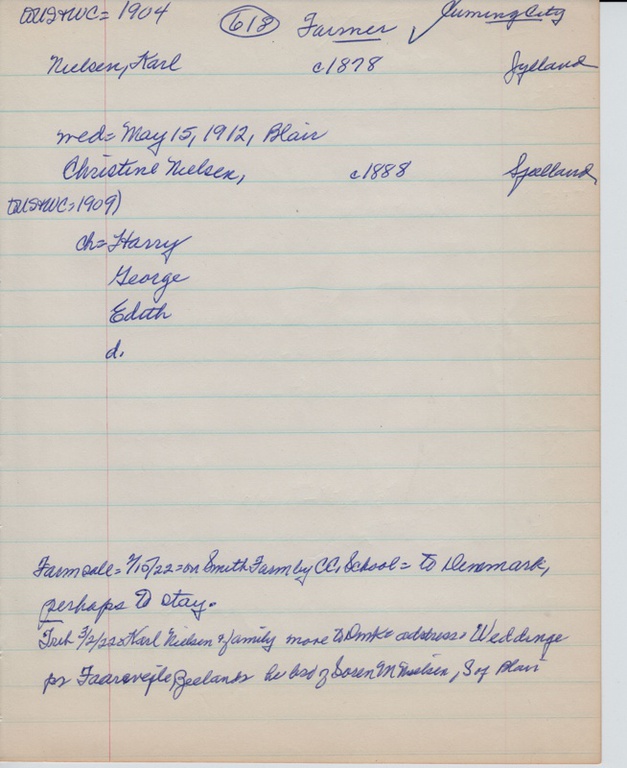 (US+WC= 1904 618 Farmer ✓ Cuming City
Nielsen, Karl c1878 Jylland
med= May 15, 1912, Blair
Christine Nielsen, c1888 Sjælland,
(US+WC=1909)
ch= Harry
George
Edith
d.
Farm sale= /10/22=on Smith Farm by CC. School= to Denmark,
perhaps to stay.
Trib 3/2/22= Karl Nielsen & family move to Dmk= address= Weddinge
pr Faarevejle Zeeland= he bro of Soren M Nielsen, S of Blair